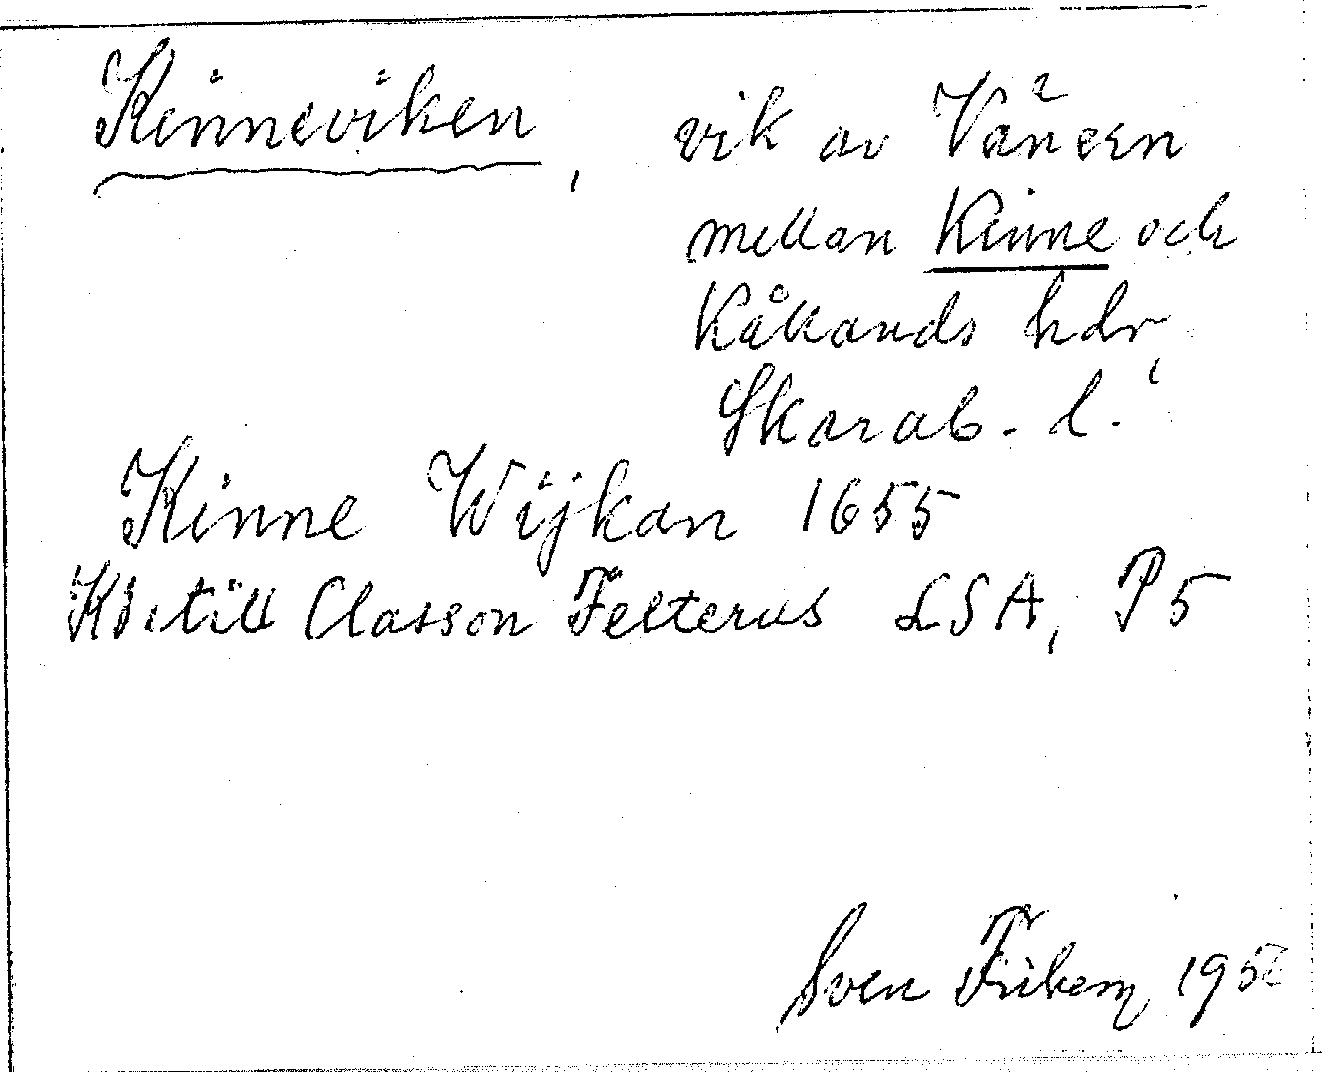 Kinneviken, vik av Vänern
mellan Kinne och
Kållands hdr,
Skarab. l.
Kinne Wijkan 1655
Kietill Classon Felterus LSA, P5
Sven